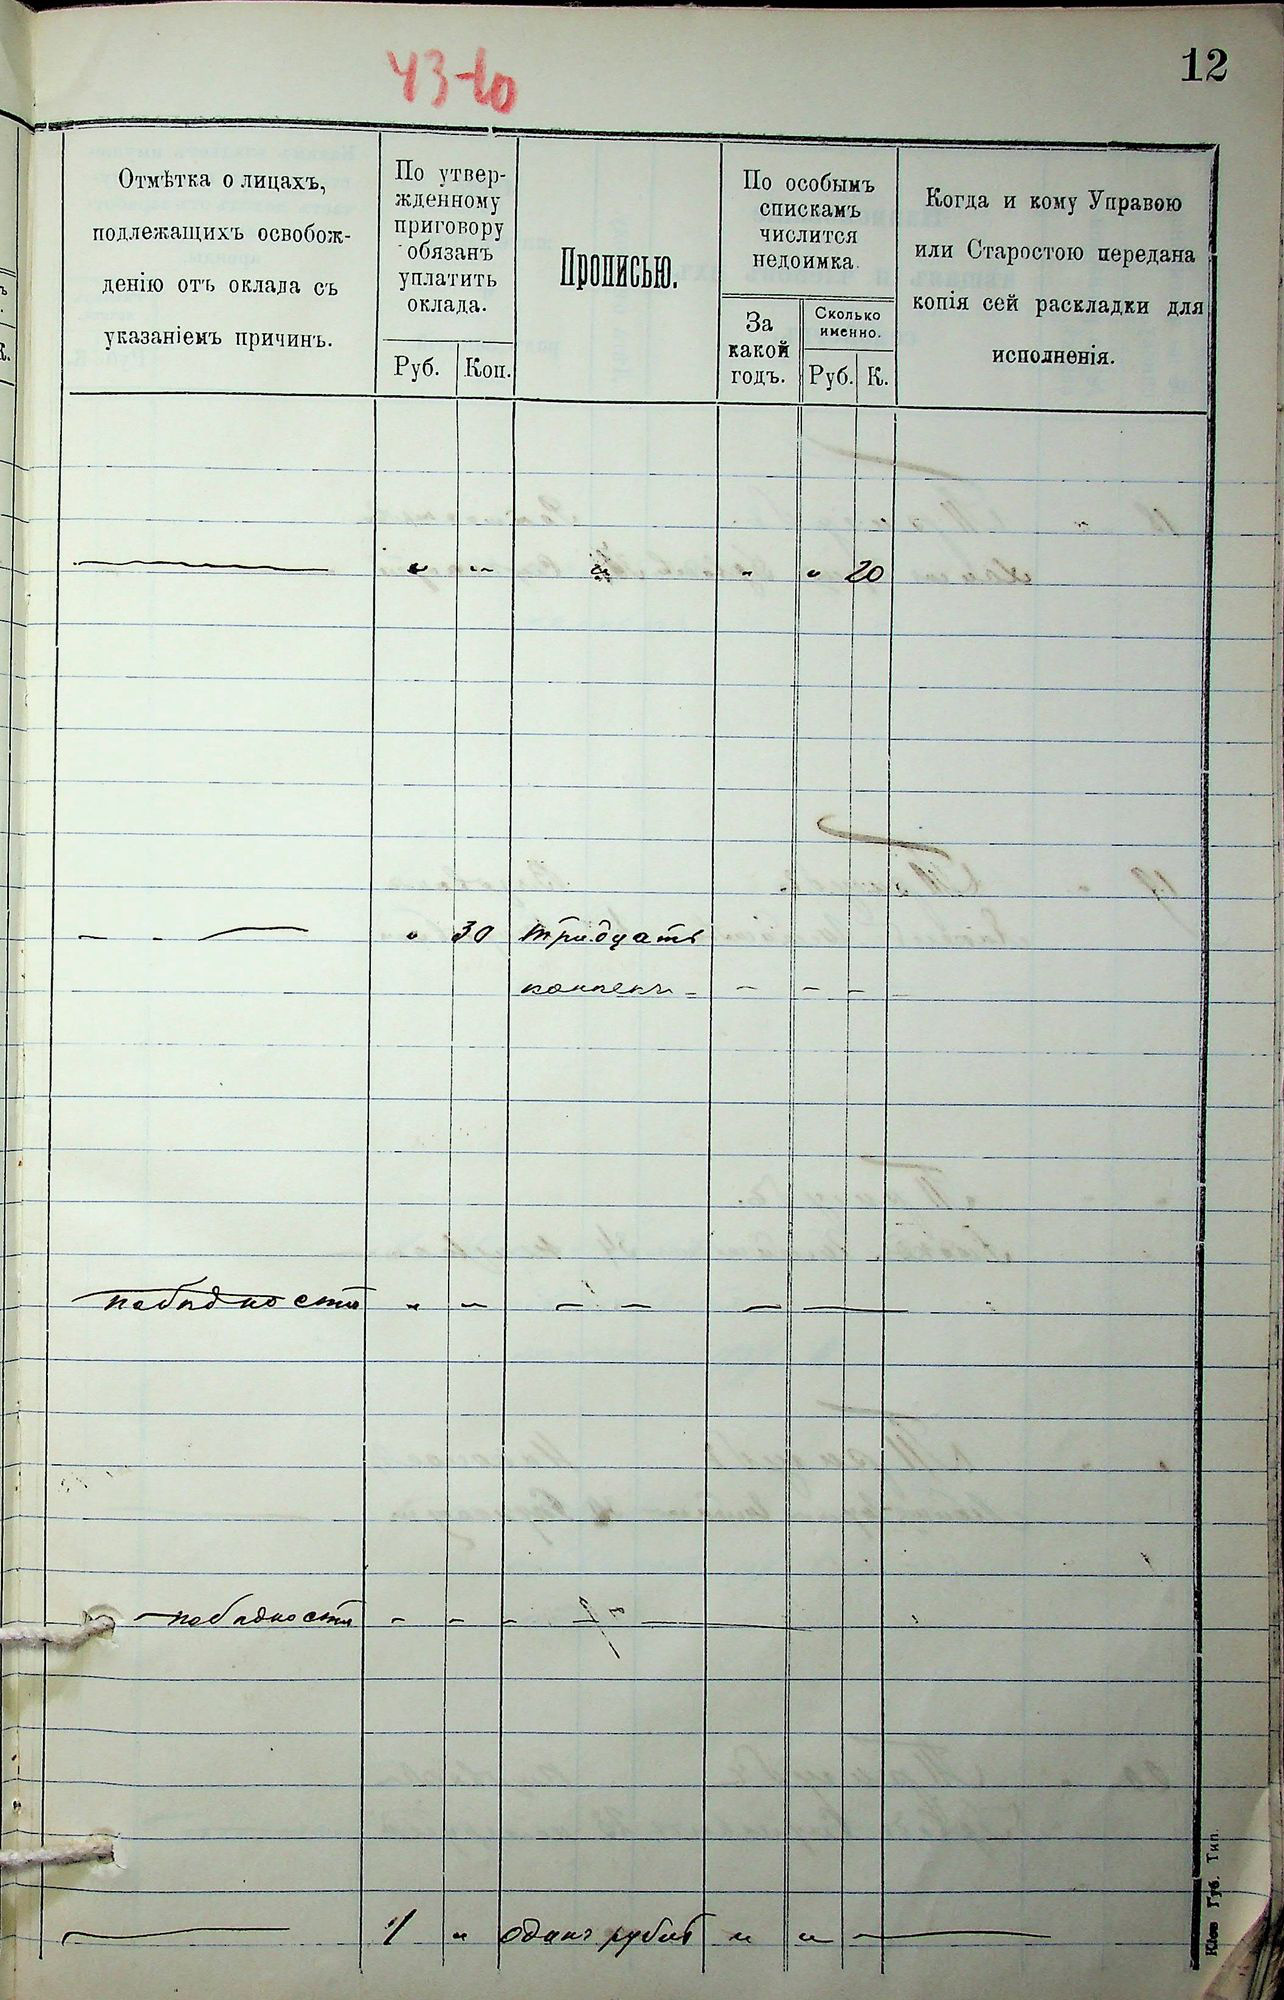 12
43-ю
Отмѣтка о лицахъ,
подлежащихъ освобож-
денію отъ оклада съ
указаніемъ причинъ.
По утвер-
жденному
приговору
обязанъ
уплатить
оклада.
Руб. Коп.
Прописью.
По особымъ
спискамъ
числится
недоимка.
За
какой
годъ.
Сколько
именно.
Руб. К.
Когда и кому Управою
или Старостою передана
копія сей раскладки для
исполненія.
" " " " " 20
" 30 тридцать
копѣекъ - - - -
по бѣдности " - - - -
по бѣдности - - - -
1 " одинъ рубль " "
Кіев. Губ. Тип.